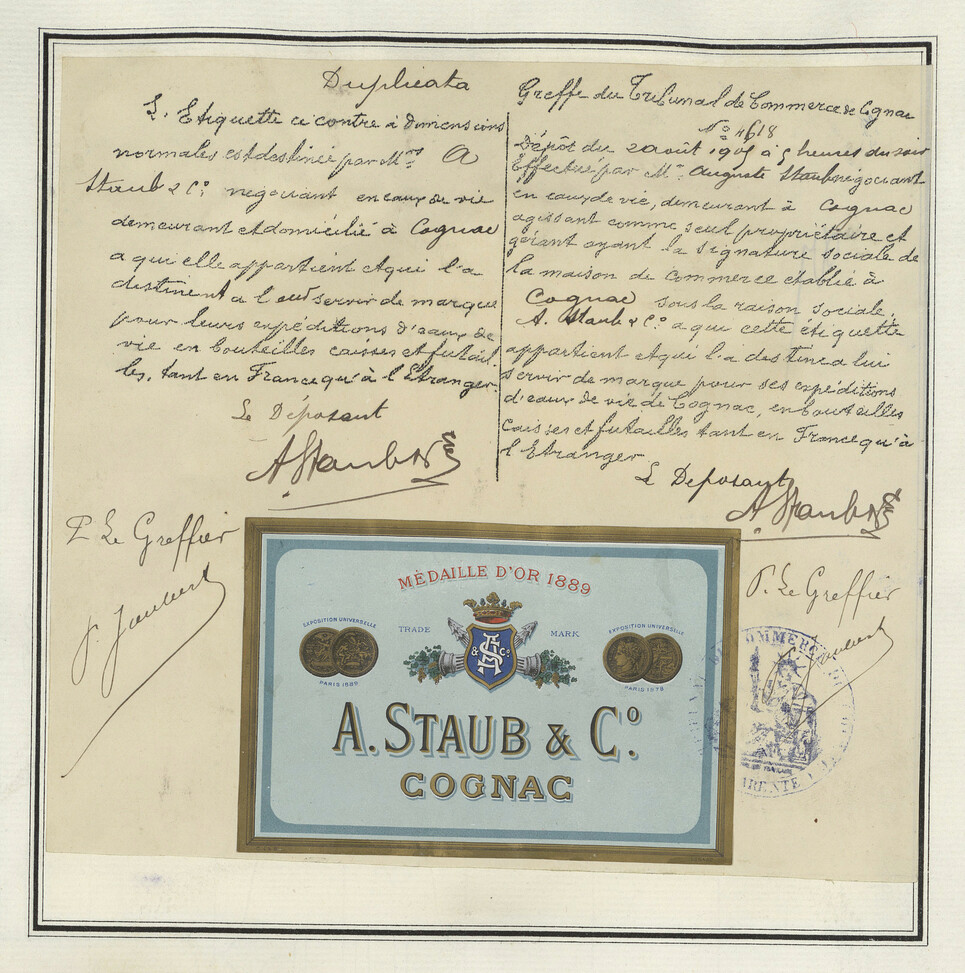 Duplicata
L. Etiquette ci contre à dimensions
normales est destinée par Mrs A
Staub & Co. negociant en eaux de vie
demeurant et domicilié à Cognac
a qui elle appartient et qui l'a
destinent a l servir de marque
pour leurs expéditions d'eaux de
vie en bouteilles caisses et futail
les, tant en France qu'à l'Etranger.
Le Déposant
A Staub &
P Le Greffier
Greffe du Tribunal de Commerce de Cognac
No 4618
Dépôt du 2 août 1905 à 5 heures du soir
Effectué par Mr Auguste Staub négociant
en eaux de vie, demeurant à Cognac
agissant comme seul propriétaire et
gérant ayant la signature sociale de
la maison de commerce etablie à
Cognac sous la raison sociale.
A. Staub & Co. a qui cette étiquette
appartient et qui l'a destine a lui
servir de marque pour ses expéditions
d'eaux de vie de Cognac, en bouteilles
caisses et futailles tant en France qu'à
l'Etranger
Le Deposant
A Staub &
P. Le Greffier
MÉDAILLE D'OR 1889
EXPOSITION UNIVERSELLE
PARIS 1889
TRADE MARK
& AS Co
EXPOSITION UNIVERSELLE
PARIS 1878
A. STAUB & Co.
COGNAC
COMMERCE